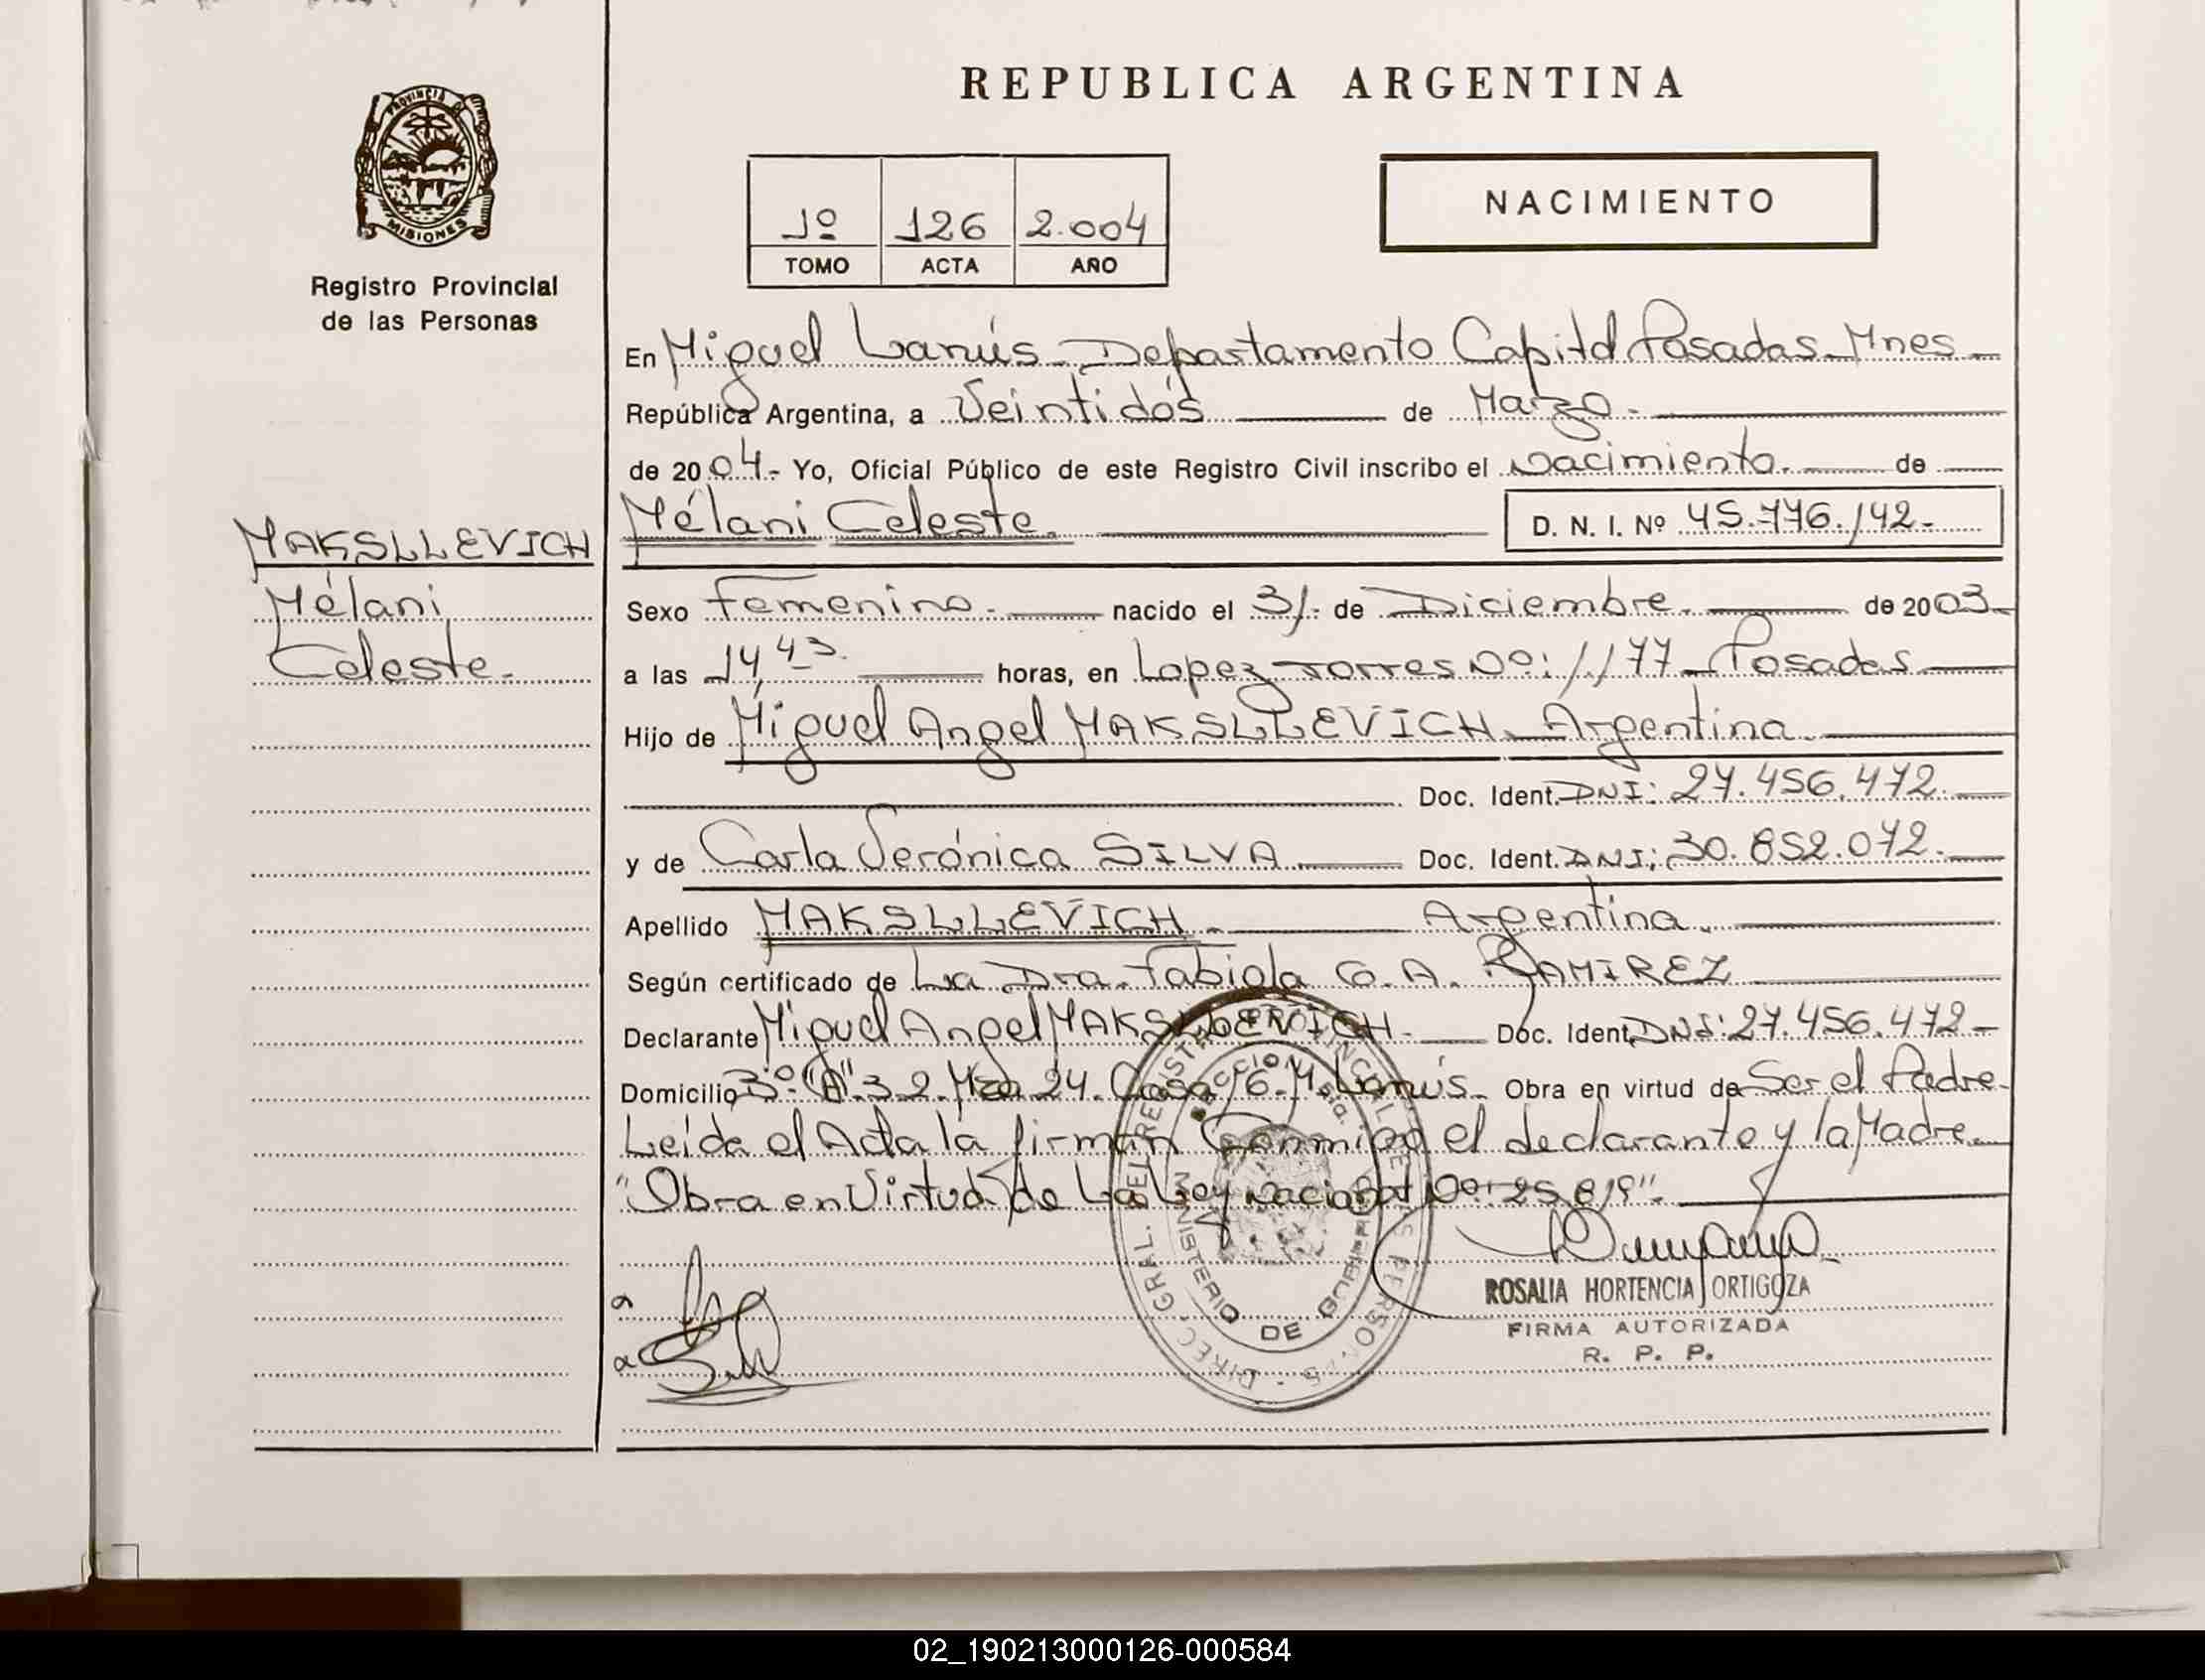 PROVINCIA D
MISIONES
Registro Provincial
de las Personas
MAKSLLEVICH
Mélani
Celeste.
REPUBLICA ARGENTINA
1º 126 2.004
TOMO ACTA AÑO
NACIMIENTO
En Miguel Lanús - Departamento Capital Posadas - Mnes -
República Argentina, a Veintidós de Marzo.
de 2004.- Yo, Oficial Público de este Registro Civil inscribo el Nacimiento. de
Mélani Celeste. D. N. I. Nº 45.776.142-
Sexo Femenino. nacido el 31. de Diciembre. de 2003-
a las 14 43. horas, en Lopez Torres Nº: 1177 - Posadas
Hijo de Miguel Angel MAKSLLEVICH - Argentina.
Doc. Ident. DNI: 27.456.472.
y de Carla Verónica SILVA Doc. Ident. DNI: 30.852.072.
Apellido MAKSLLEVICH. Argentina.
Según certificado de La Dra. Fabiola G. A. RAMIREZ
Declarante Miguel Angel MAKSLLEVICH. Doc. Ident. DNI: 27.456.472-
Domicilio 3º "A" 32. Mza 24. Casa 16. M. Lanús. Obra en virtud de Ser el Padre.
Leída el Acta la firman Conmigo el declarante y la Madre.
"Obra en Virtud de La Ley Nacional Nº: 25.819".
DIREC. GRAL. DEL REGISTRO PROVINCIAL DE LAS PERSONAS
MINISTERIO DE GOBIERNO
ROSALIA HORTENCIA ORTIGOZA
FIRMA AUTORIZADA
R. P. P.
02_190213000126-000584